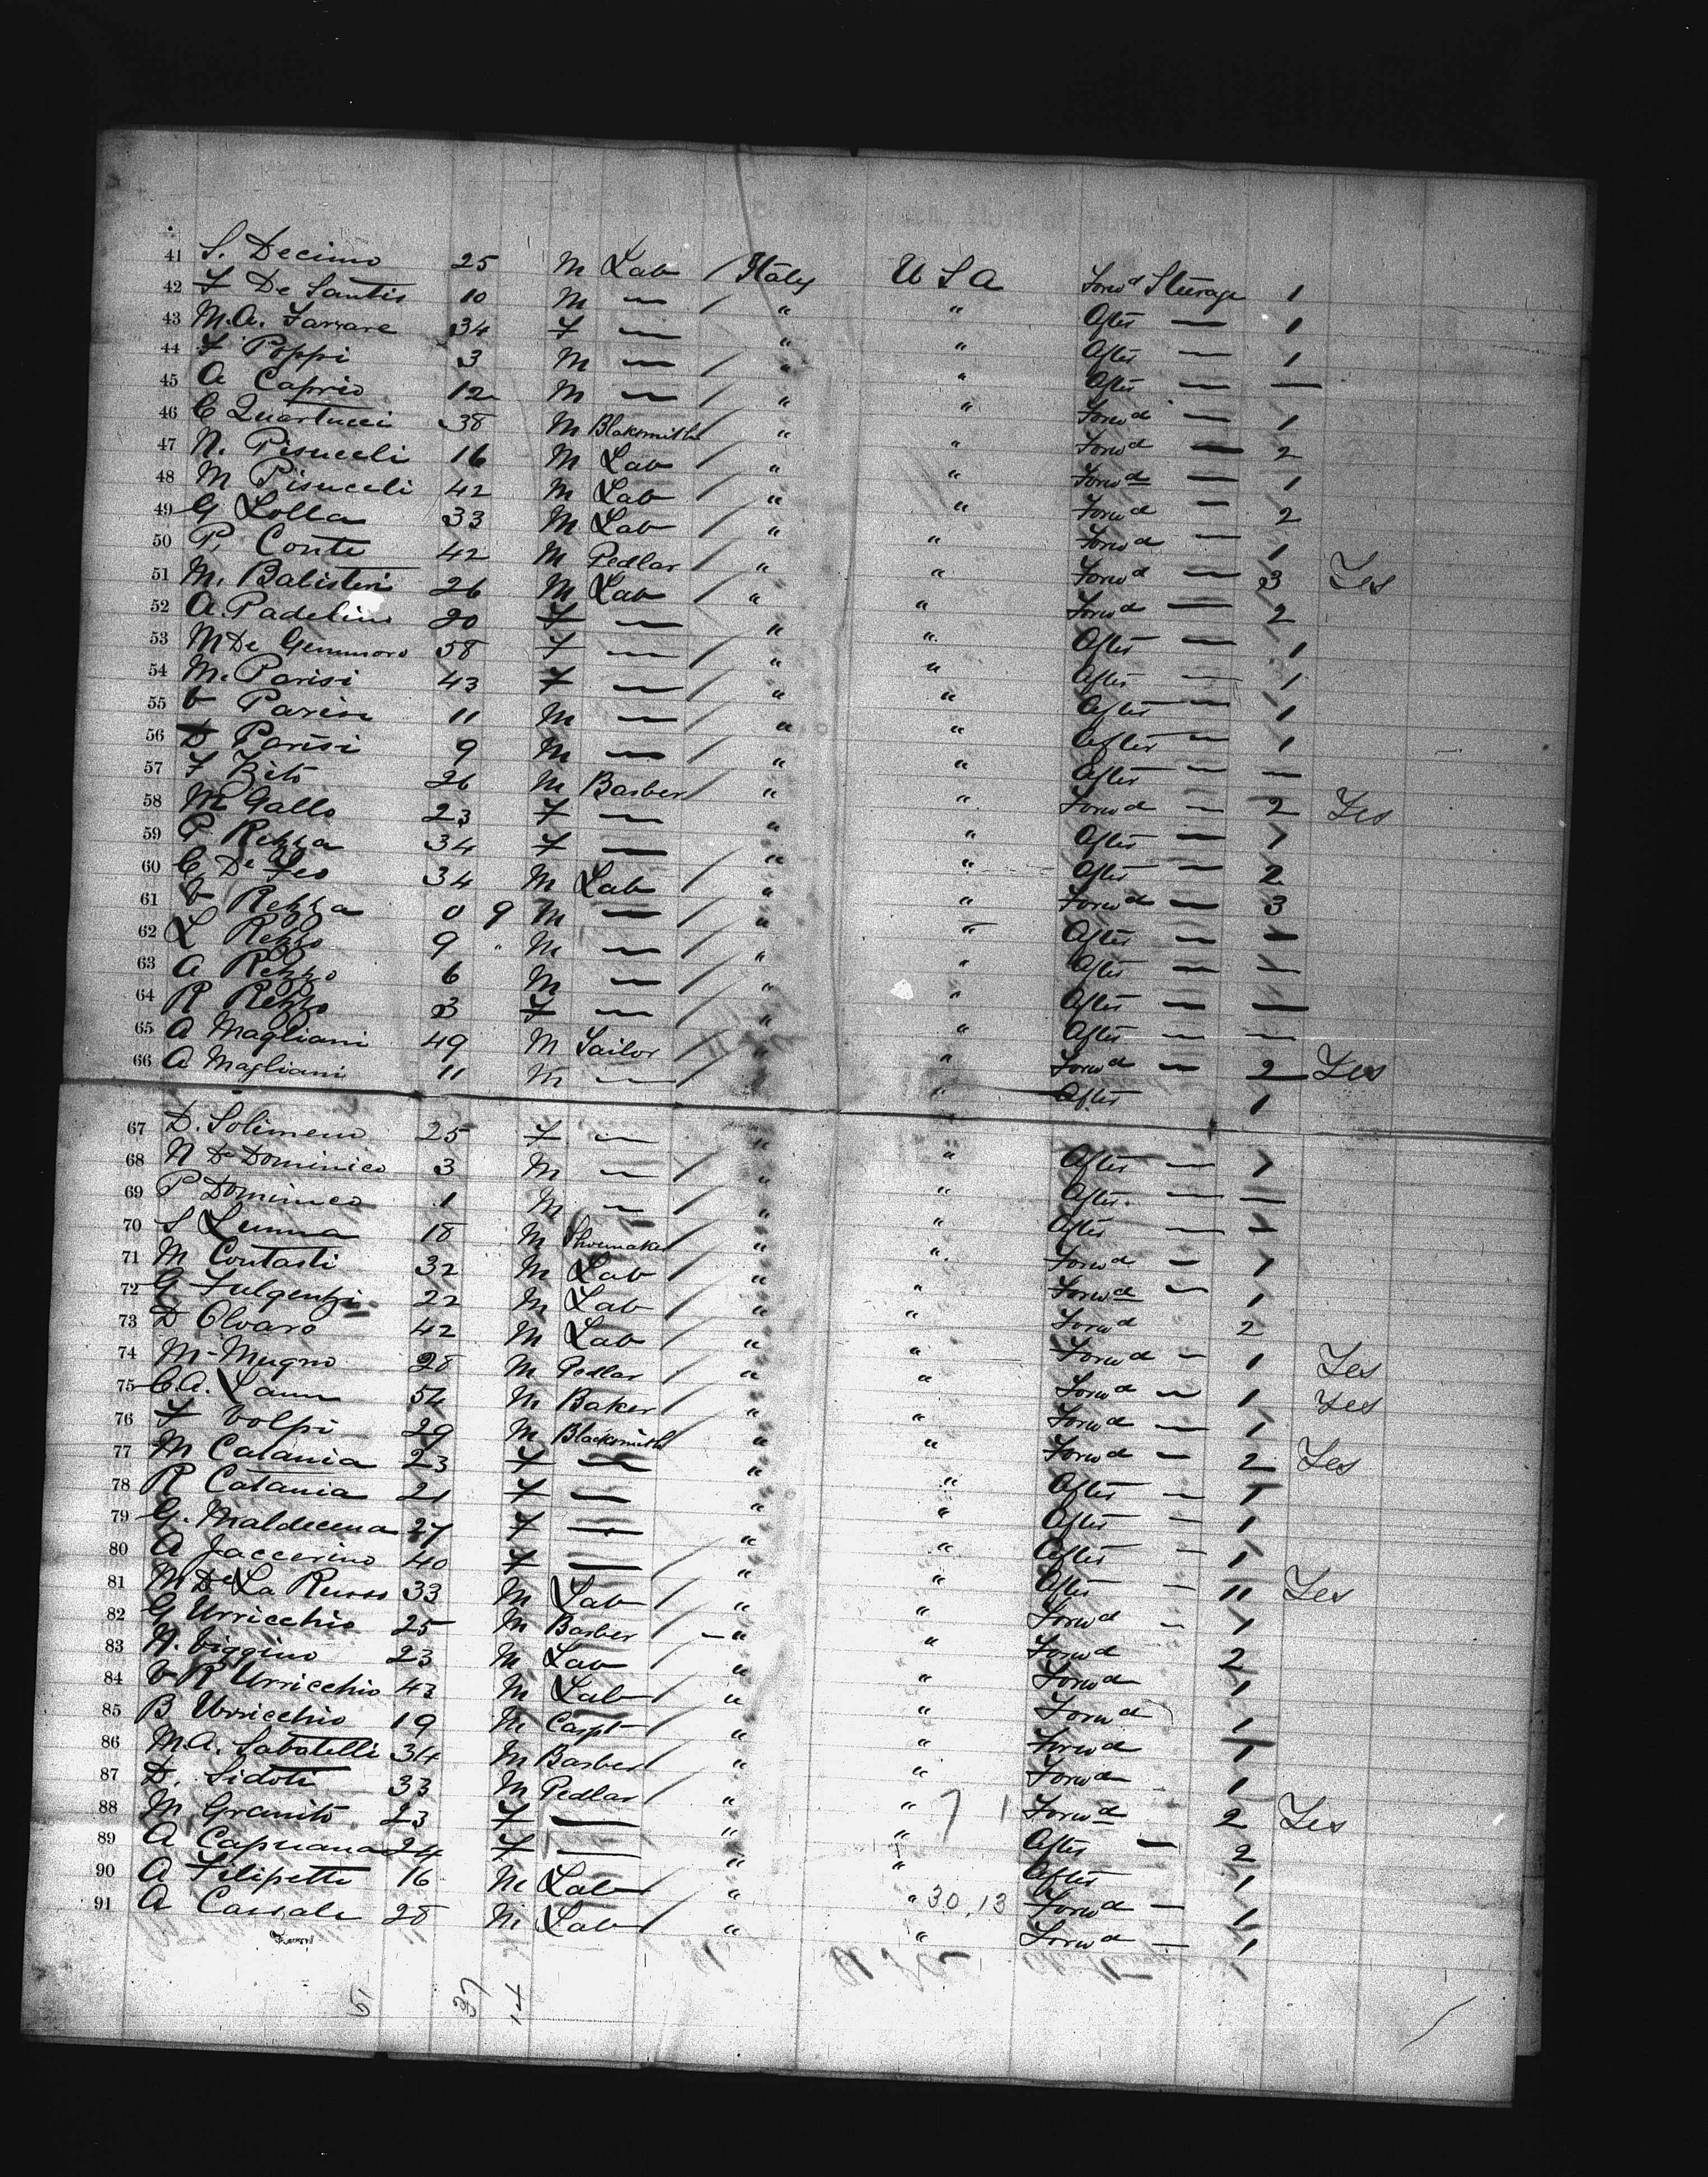 41 S. Decimo 25 M Lab / Italy U S A Forwd Steerage 1
42 F De Santis 10 M — / " " After — 1
43 M.A. Farrare 34 F — " " After — 1
44 F Poppi 3 M — / " " After — —
45 A Caprio 12 M — / " " Forwd — 1
46 C Quartucci 38 M Blaksmith / " " Forwd — 2
47 N. Pisuceli 16 M Lab / " " Forwd — 1
48 M Pisuceli 42 M Lab / " " Forwd — 2
49 G Lolla 33 M Lab / " " Forwd — 1
50 P. Conte 42 M Pedlar / " " Forwd — 3 Yes
51 M. Balisteri 26 M Lab / " " Forwd — 2
52 A. Padelino 20 F — / " " After — 1
53 M De Gennaro 58 F — / " " After — 1
54 M. Parisi 43 F — / " " After — 1
55 V Parisi 11 M — / " " After — 1
56 D Parisi 9 M — / " " After — —
57 F Bito 26 M Barber / " " Forwd — 2 Yes
58 M Gallo 23 F — / " " After — 1
59 P Rezza 34 F — / " " After — 2
60 C. De Feo 34 M Lab / " " Forwd — 3
61 V Rezza 0 9 M — / " " After — —
62 L Rezzo 9 " M — / " " After — —
63 A Rezzo 6 M — / " " After — —
64 R Rezzo 3 F — / " " After — —
65 A Magliani 49 M Sailor / " " Forwd — 2 Yes
66 A Magliani 11 M — / " " After 1
67 D. Solimeno 25 F — " " After — 1
68 N De Dominico 3 M — / " " After. — —
69 P Dominico 1 M — / " " After — —
70 S Lumna 18 M Shoemaker / " " Forwd — 1
71 M Contasti 32 M Lab / " " Forwd — 1
72 G Fulgentzi 22 M Lab / " " Forwd 2
73 D Olvaro 42 M Lab / " " Forwd — 1 Yes
74 M Mugno 28 M Pedlar / " " Forwd — 1 Yes
75 C A. Laun 54 M Baker / " " Forwd — 1
76 F Volpi 29 M Blacksmith " " Forwd — 2 Yes
77 M Catania 23 F — " " After — 1
78 R Catania 21 F — " " After — 1
79 G. Maldecena 27 F — " " After — 1
80 A Jaccerino 40 F — / " " After — 11 Yes
81 M De La Russo 33 M Lab / " " Forwd — 1
82 G Urricchio 25 M Barber / " " Forwd 2
83 N. Viggino 23 M Lab / " " Forwd 1
84 V R Urricchio 43 M Lab / " " Forwd 1
85 B Urricchio 19 M Carpt / " " Forwd 1
86 M.A. Sabatelli 34 M Barber / " " Forwd 1
87 D. Sidoti 33 M Pedlar / " " Forwd 2 Yes
88 M Granito 23 F — " " After — 2
89 A Capruana 24 F — " " After 1
90 A Filipette 16 M Lab / " " 30,13 Forwd — 1
91 A Cassale 28 M Lab / " " Forwd — 1
51 37 14